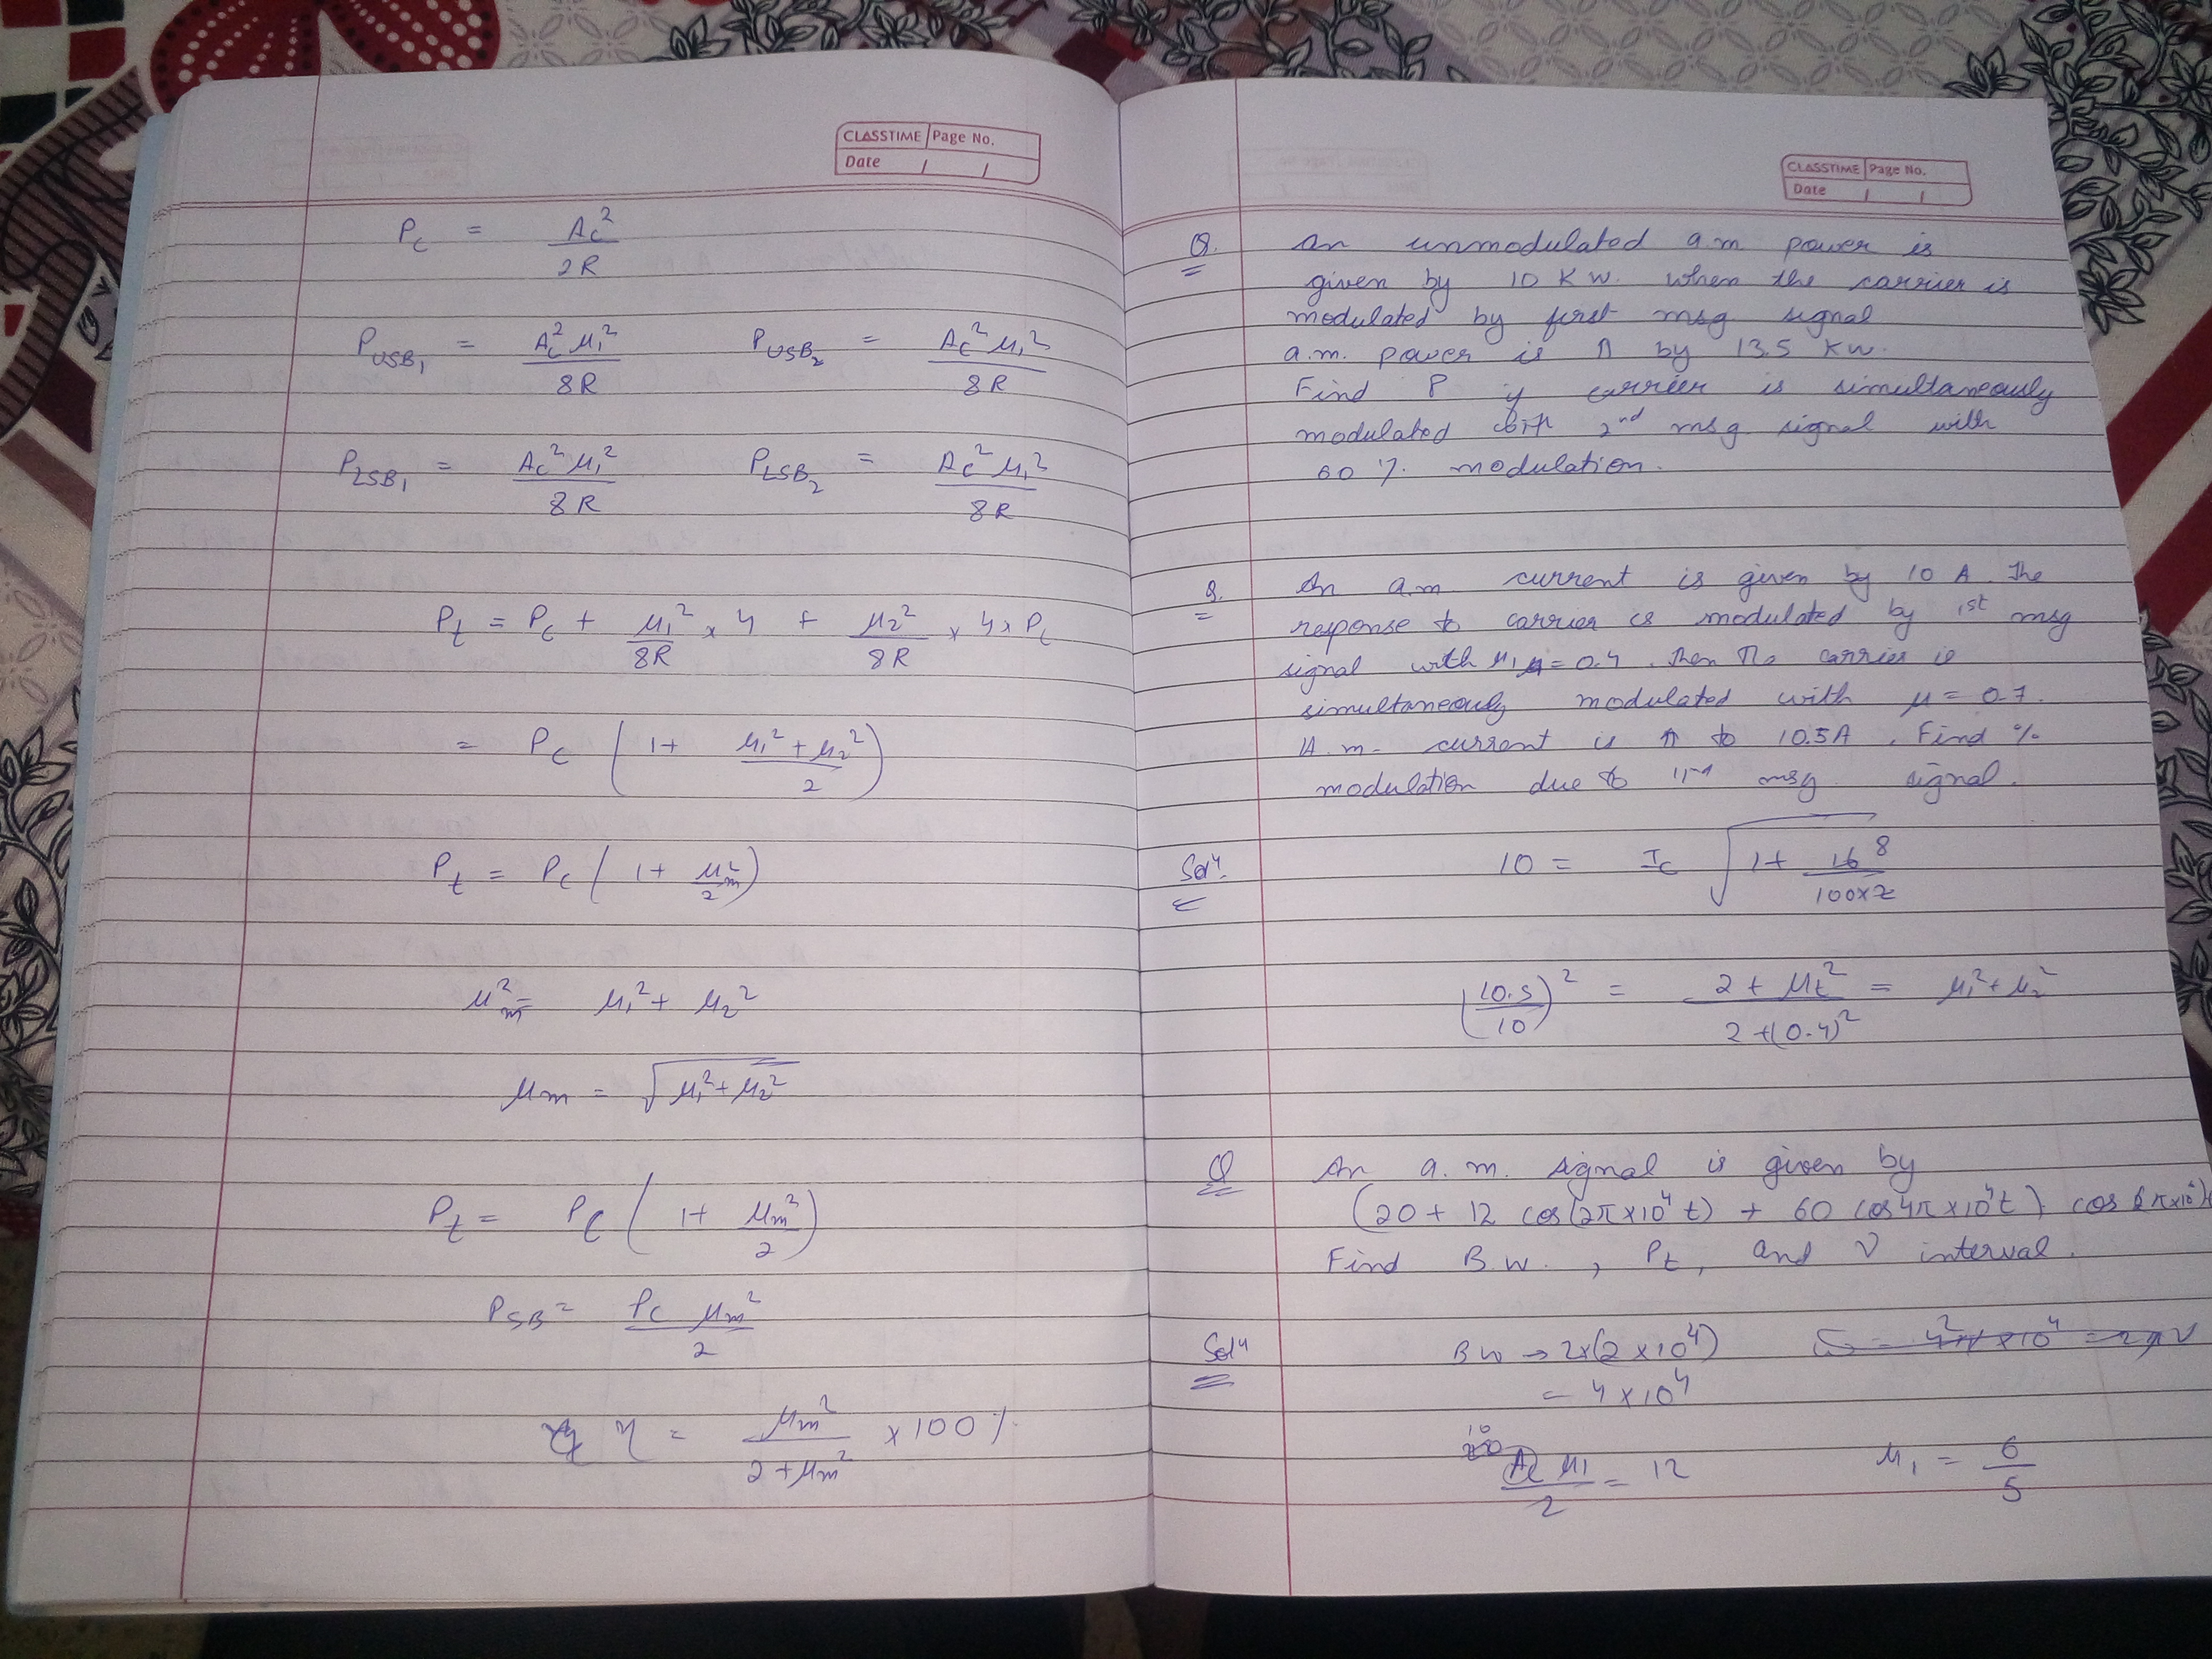 CLASSTIME Page No.
Date / /
P_c = A_c² / 2R
P_USB₁ = A_c² μ₁² / 8R P_USB₂ = A_c² μ₁² / 8R
P_LSB₁ = A_c² μ₁² / 8R P_LSB₂ = A_c² μ₁² / 8R
P_t = P_c + μ₁² / 8R × 4 + μ₂² / 8R × 4 × P_c
= P_c ( 1 + μ₁² + μ₂² / 2 )
P_t = P_c ( 1 + μ_m² / 2 )
μ_m² = μ₁² + μ₂²
μ_m = √(μ₁² + μ₂²)
P_t = P_c ( 1 + μ_m² / 2 )
P_SB = P_c μ_m² / 2
η = μ_m² / 2 + μ_m² × 100 %
CLASSTIME Page No.
Date / /
Q. An unmodulated a.m power is
given by 10 KW. When the carrier is
modulated by first msg signal
a.m. power is ↑ by 13.5 KW.
Find P if carrier is simultaneously
modulated with 2nd msg signal with
60 % modulation.
Q. An a.m. current is given by 10 A. The
response to carrier is modulated by 1st msg
signal with μ₁ = 0.4. Then the carrier is
simultaneously modulated with μ = 0.7.
A.m. current is ↑ to 10.5A. Find %
modulation due to msg signal.
Solⁿ 10 = I_c √(1 + 16 8 / 100×2)
(10.5 / 10)² = 2 + μ_t² / 2 + (0.4)² = μ₁² + μ₂²
Q An a.m. signal is given by
(20 + 12 cos(2π×10⁴ t) + 60 cos4π×10⁴t) cos
Find B.W., P_t, and ν interval.
Solⁿ BW → 2×(2 × 10⁴)
= 4 × 10⁴
10
A_c μ₁ / 2 = 12 μ₁ = 6 / 5